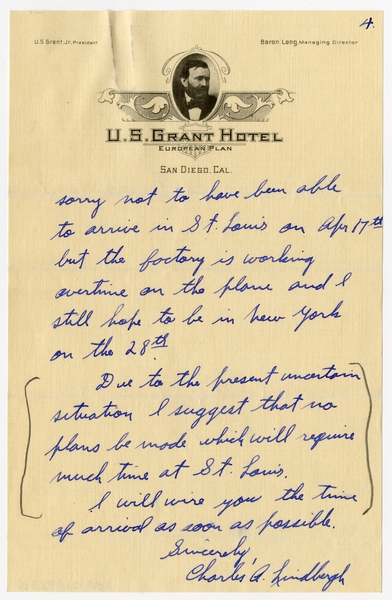 4.
U.S. Grant Jr, President
Baron Long, Managing Director
U.S. Grant Hotel
European Plan
San Diego, Cal.
sorry not to have been able
to arrive in St. Louis on Apr 17th
but the factory is working
overtime on the plane and I
still hope to be in New York
on the 28th.
Due to the present uncertain
situation I suggest that no
plans be made which will require
much time at St. Louis.
I will wire you the time
of arrival as soon as possible.
Sincerely,
Charles A. Lindbergh